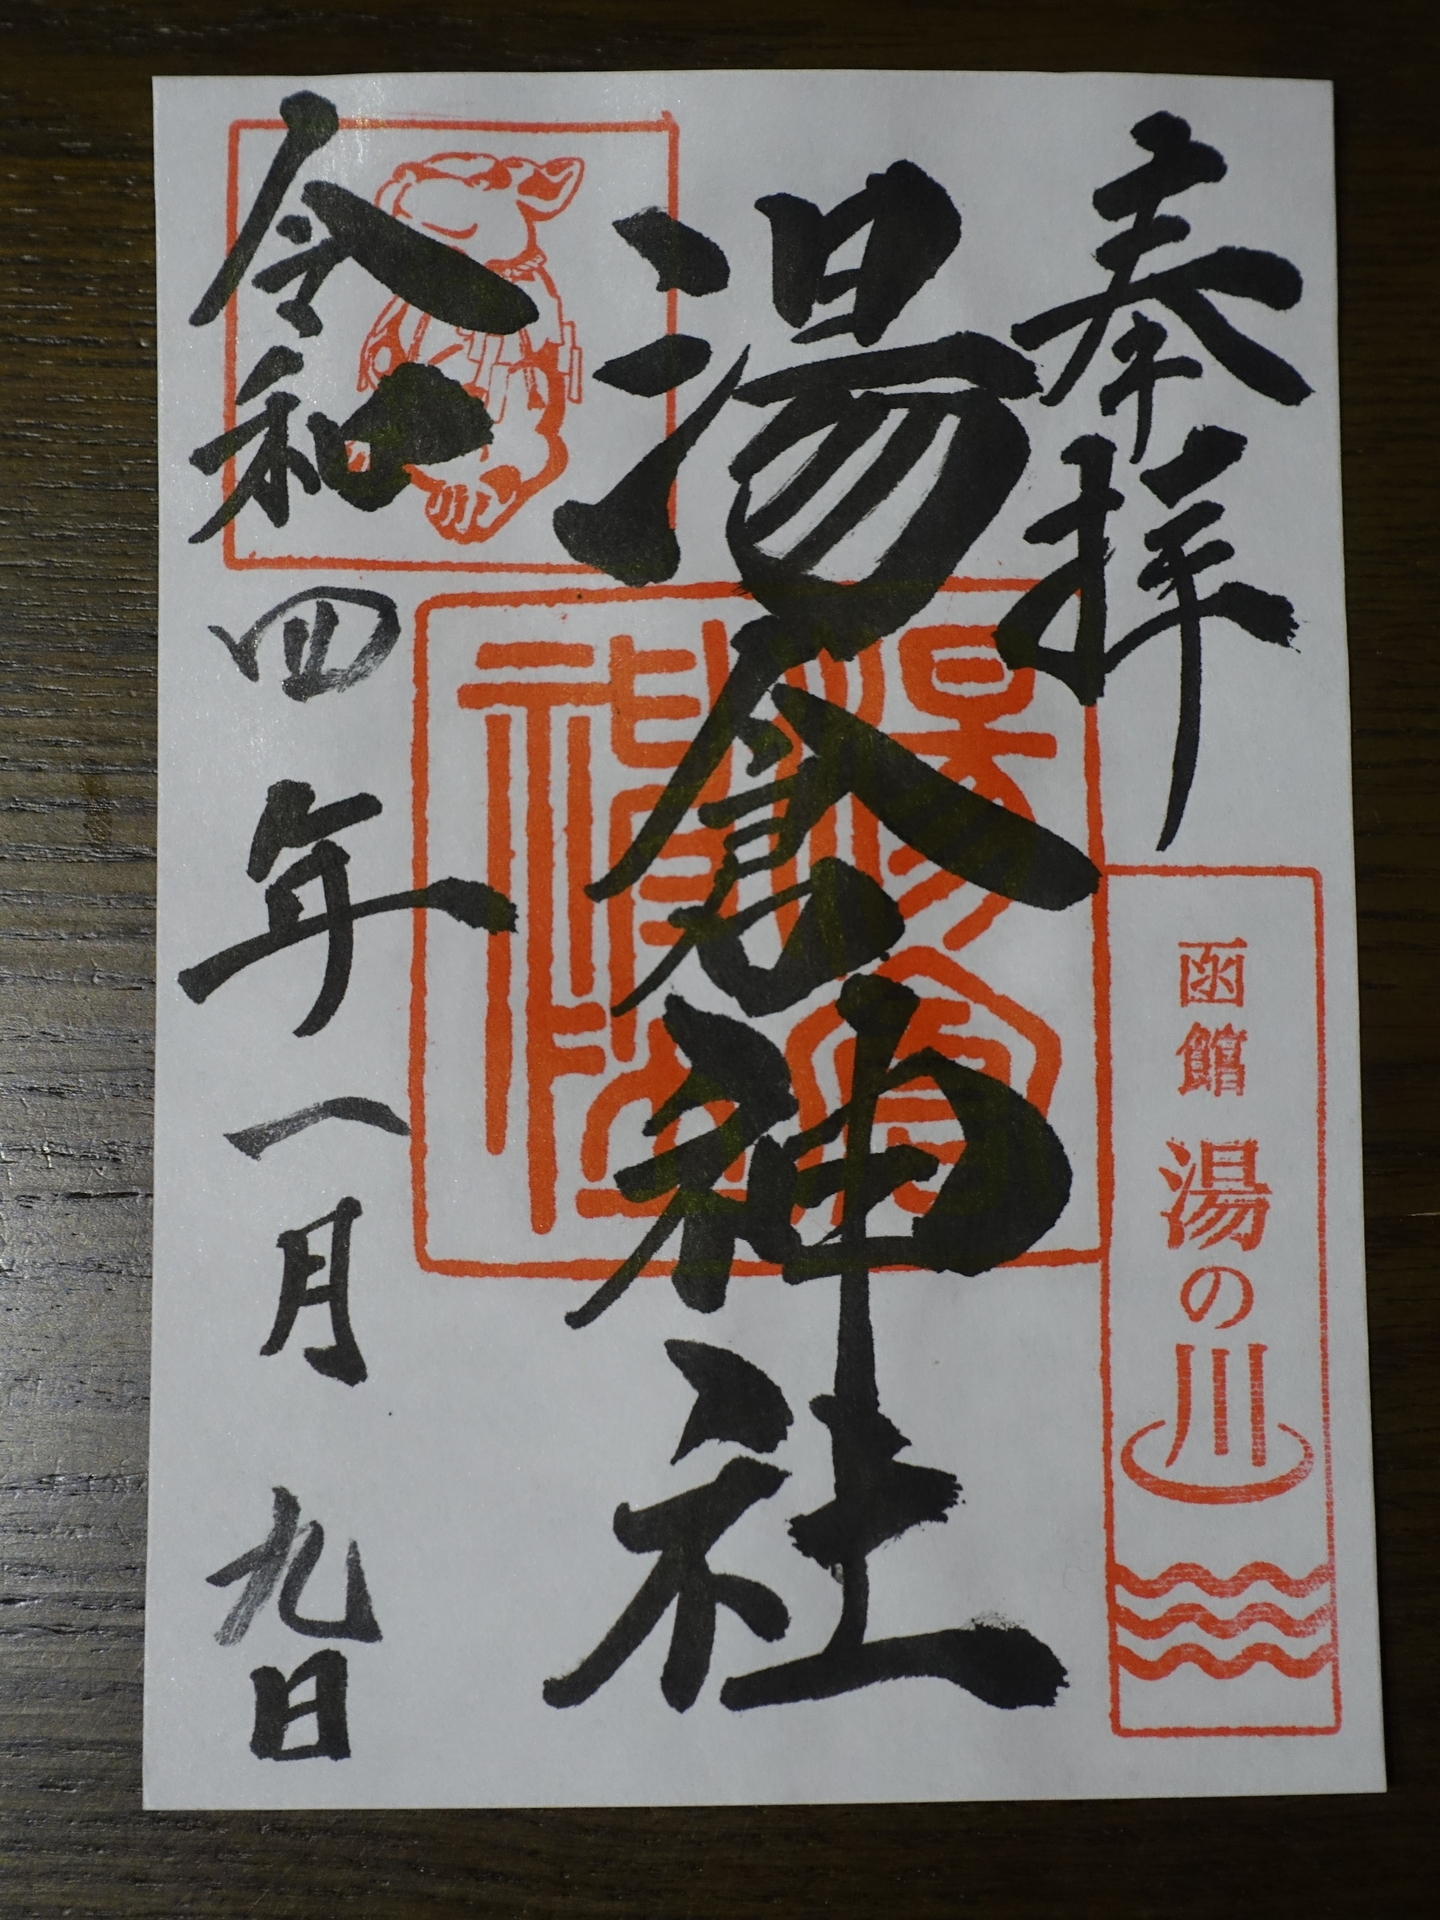 奉拝
函館 湯の川
湯倉神社
令和四年一月九日